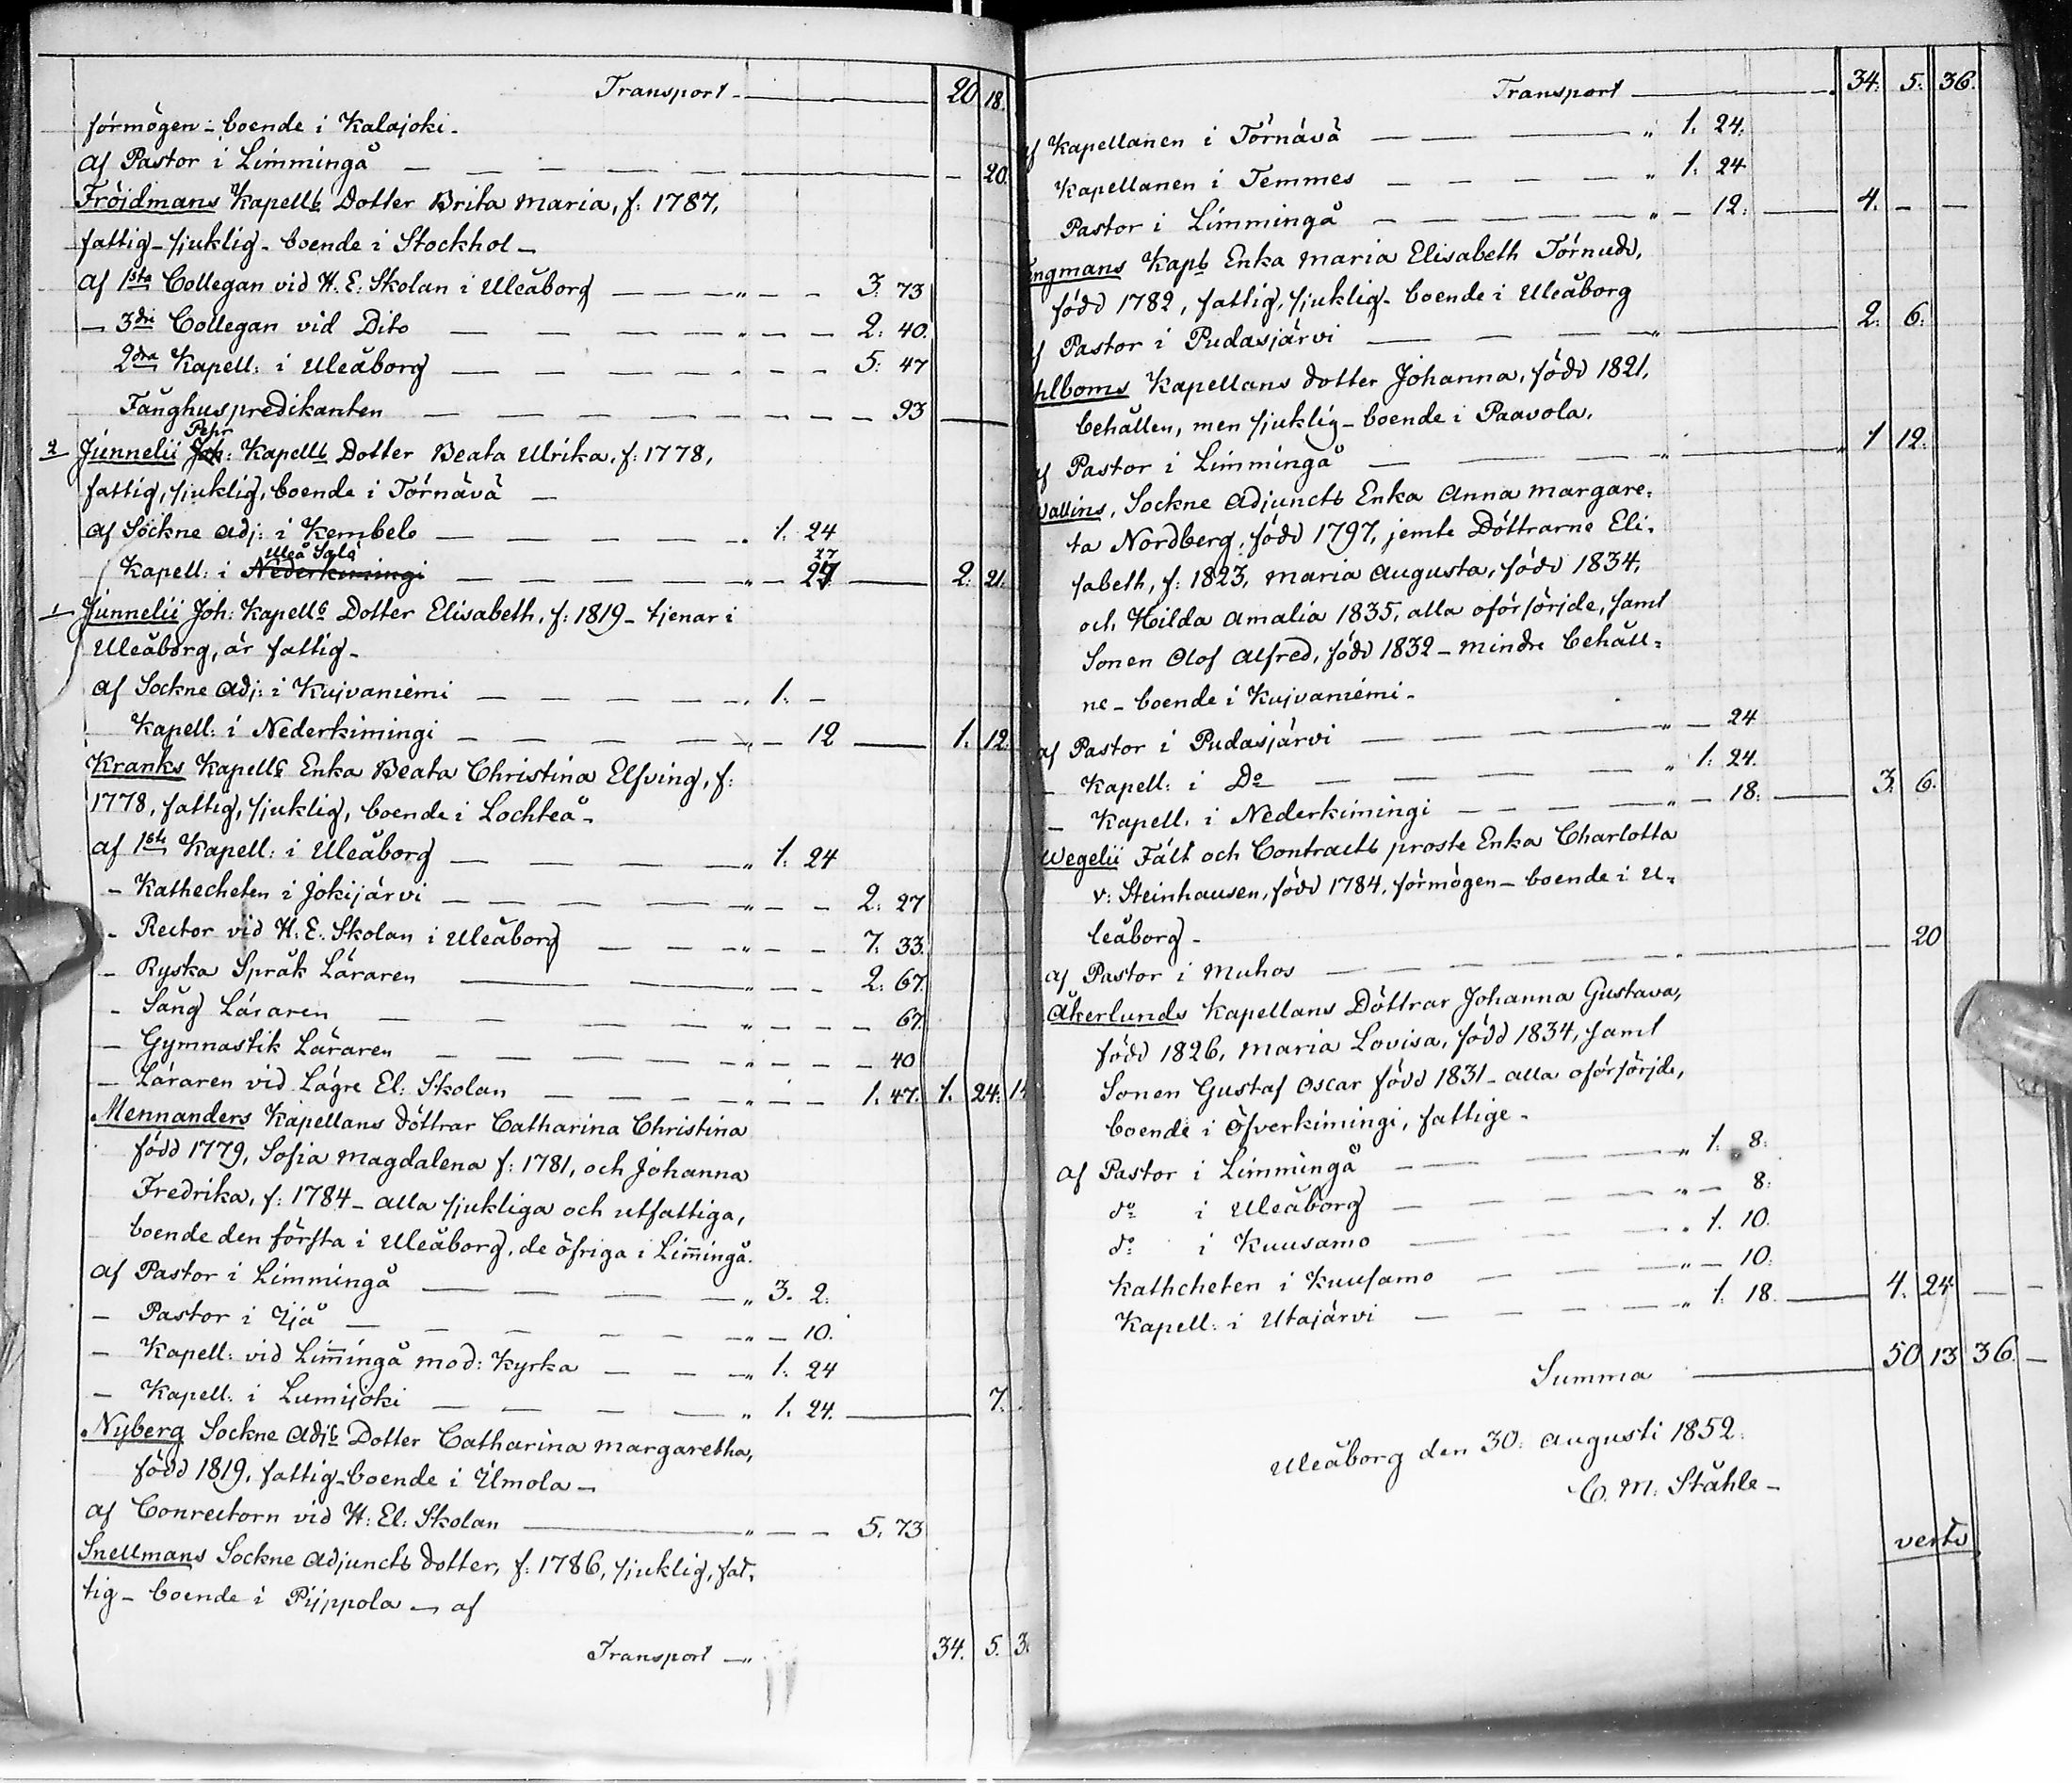 Transport 20 18.
förmögen - boende i Kalajoki.
af Pastor i Limmingå — 20.
Fröjdmans Kapells Dotter Brita Maria, f: 1787,
fattig - sjuklig - boende i Stockhol -
af 1sta Collegan vid H. E. Skolan i Uleåborg " — — 3. 73
— 3dje Collegan vid Dito " — — 2. 40.
2dra Kapell: i Uleåborg — — 5: 47
Fånghuspredikanten — — — 93
Pehr
2 Junnelii Joh: Kapells Dotter Beata Ulrika, f: 1778,
fattig, sjuklig, boende i Törnävä —
af Sockne Adj: i Kembele 1. 24
Uleå Salo 27
Kapell: i Nederkimingi " — 27 2. 21.
1 Junnelii Joh: Kapells Dotter Elisabeth, f: 1819 - tjenar i
Uleåborg, är fattig -
af Sockne Adj: i Kujvaniemi " 1. —
Kapell: i Nederkimingi " — 12 1. 12.
Kranks Kapells Enka Beata Christina Elfving, f:
1778, fattig, sjuklig, boende i Lochteå -
af 1sta Kapell: i Uleåborg " 1. 24
— Kathecheten i Jokijärvi " — — 2. 27
- Rector vid H. E. Skolan i Uleåborg " — — 7. 33.
- Ryska Språk Läraren " — — 2. 67.
- Sång Läraren " — — — 67.
— Gymnastik Läraren " — — — 40
— Läraren vid Lägre El: Skolan " — — 1. 47. 1. 24.
Mennanders Kapellans döttrar Catharina Christina
född 1779, Sofia Magdalena f: 1781, och Johanna
Fredrika, f: 1784 - alla sjukliga och utfattiga,
boende den första i Uleåborg, de öfriga i Lim̄ingå.
af Pastor i Limmingå " 3. 2.
— Pastor i Ijå " — 10.
— Kapell: vid Lim̄ingå mod: Kyrka " 1. 24
— Kapell: i Lumijoki " 1. 24. 7.
Nyberg Sockne Adjs Dotter Catharina Margaretha,
född 1819, fattig - boende i Ilmola -
af Conrectorn vid H: El: Skolan " — — 5. 73
Snellmans Sockne Adjuncts dotter, f: 1786, sjuklig, fat,
tig - boende i Pijppola — af
Transport " 34. 5. 3
Transport 34. 5. 36.
af Kapellanen i Törnävä " 1. 24.
Kapellanen i Temmes " 1. 24
Pastor i Limmingå " — 12. 4. — —
ngmans Kaps Enka Maria Elisabeth Törnudd,
född 1782, fattig, sjuklig - boende i Uleåborg
af Pastor i Pudasjärvi " 2. 6.
hlboms Kapellans dotter Johanna, född 1821,
behållen, men sjuklig - boende i Paavola.
af Pastor i Limmingå " 1 12.
Wallins, Sockne Adjuncts Enka Anna Margare,
ta Nordberg, född 1797, jemte Döttrarne Eli,
sabeth, f: 1823, Maria Augusta, född 1834,
och Hilda Amalia 1835, alla oförsörjde, samt
Sonen Olof Alfred, född 1832 - mindre behåll,
ne - boende i Kujvaniemi -
af Pastor i Pudasjärvi " — 24
— Kapell: i Do " 1. 24.
— Kapell. i Nederkimingi " — 18. 3. 6.
Wegelii Fält och Contracts proste Enka Charlotta
v: Steinhausen, född 1784, förmögen - boende i U,
leåborg -
af Pastor i Muhos — 20
Åkerlunds Kapellans Döttrar Johanna Gustava,
född 1826, Maria Lovisa, född 1834, samt
Sonen Gustaf Oscar född 1831 - alla oförsörjde,
boende i Öfverkimingi, fattige -
af Pastor i Limmingå " 1. 8.
do i Uleåborg " — 8.
do: i Kuusamo " 1. 10.
Kathcheten i Kuusamo " — 10.
Kapell: i Utajärvi " 1. 18. 4. 24 — —
Summa 50 13 36. —
Uleåborg den 30. Augusti 1852.
C. M. Ståhle -
verte